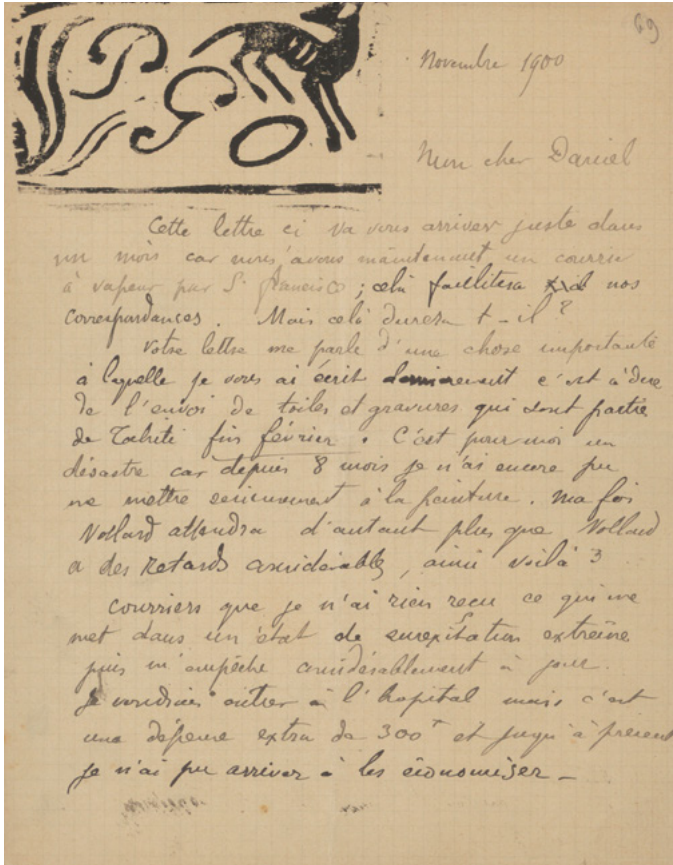 69
Novembre 1900
Mon cher Daniel
Cette lettre ci va vous arriver juste dans
un mois car nous avons maintenant un courrier
à vapeur par S. Francisco ; celà facilitera nos
correspondances. Mais celà durera t-il ?
Votre lettre me parle d'une chose importante
à laquelle je vous ai écrit dernierement c'est à dire
de l'envoi de toiles et gravures qui sont partie
de Tahiti fin février. C'est pour moi un
désastre car depuis 8 mois je n'ai encore pu
me mettre serieusement à la peinture. Ma foi
Vollard attendra d'autant plus que Vollard
a des retards considérables, ainsi voilà 3
courriers que je n'ai rien reçu ce qui me
met dans un état de surexitation extreme
puis m'empêche considérablement à
Je voudrais entrer à l'hopital mais c'est
une dépense extra de 300f et jusqu'à présent
je n'ai pu arriver à les économiser _